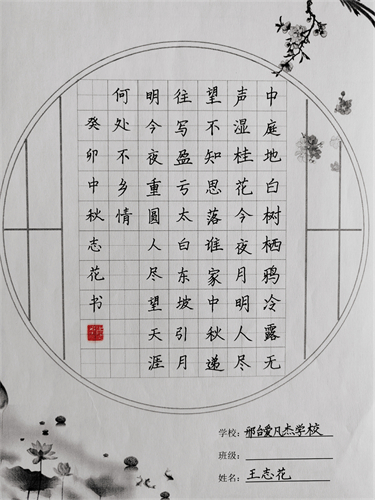 中庭地白树栖鸦冷露无
声湿桂花今夜月明人尽
望不知思落谁家中秋递
往写盈亏太白东坡引月
明今夜重圆人尽望天涯
何处不乡情
癸卯中秋志花书
学校：邢台爱凡杰学校
班级：
姓名：王志花